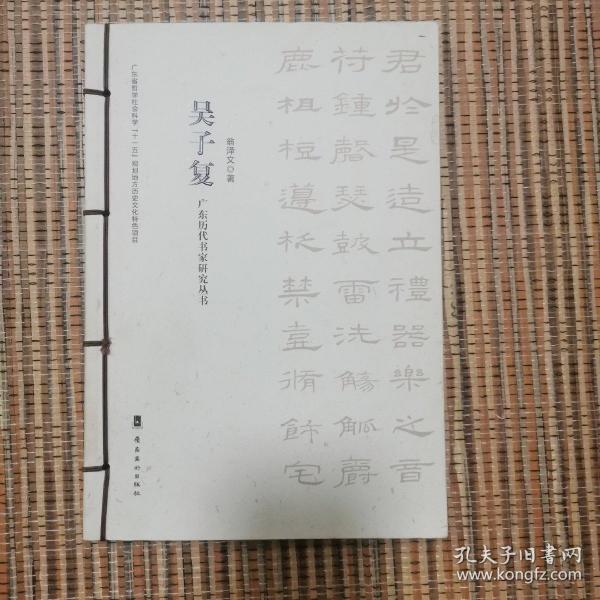 君於是造立禮器樂之音
符鍾磬瑟鼓雷洗觴觚爵
鹿柤梪籩柉禁壺脩飾宅
翁泽文◎著
吴子复
广东历代书家研究丛书
广东省哲学社会科学“十一五”规划地方历史文化特色项目
岭南美术出版社
孔夫子旧书网
www.kongfz.com